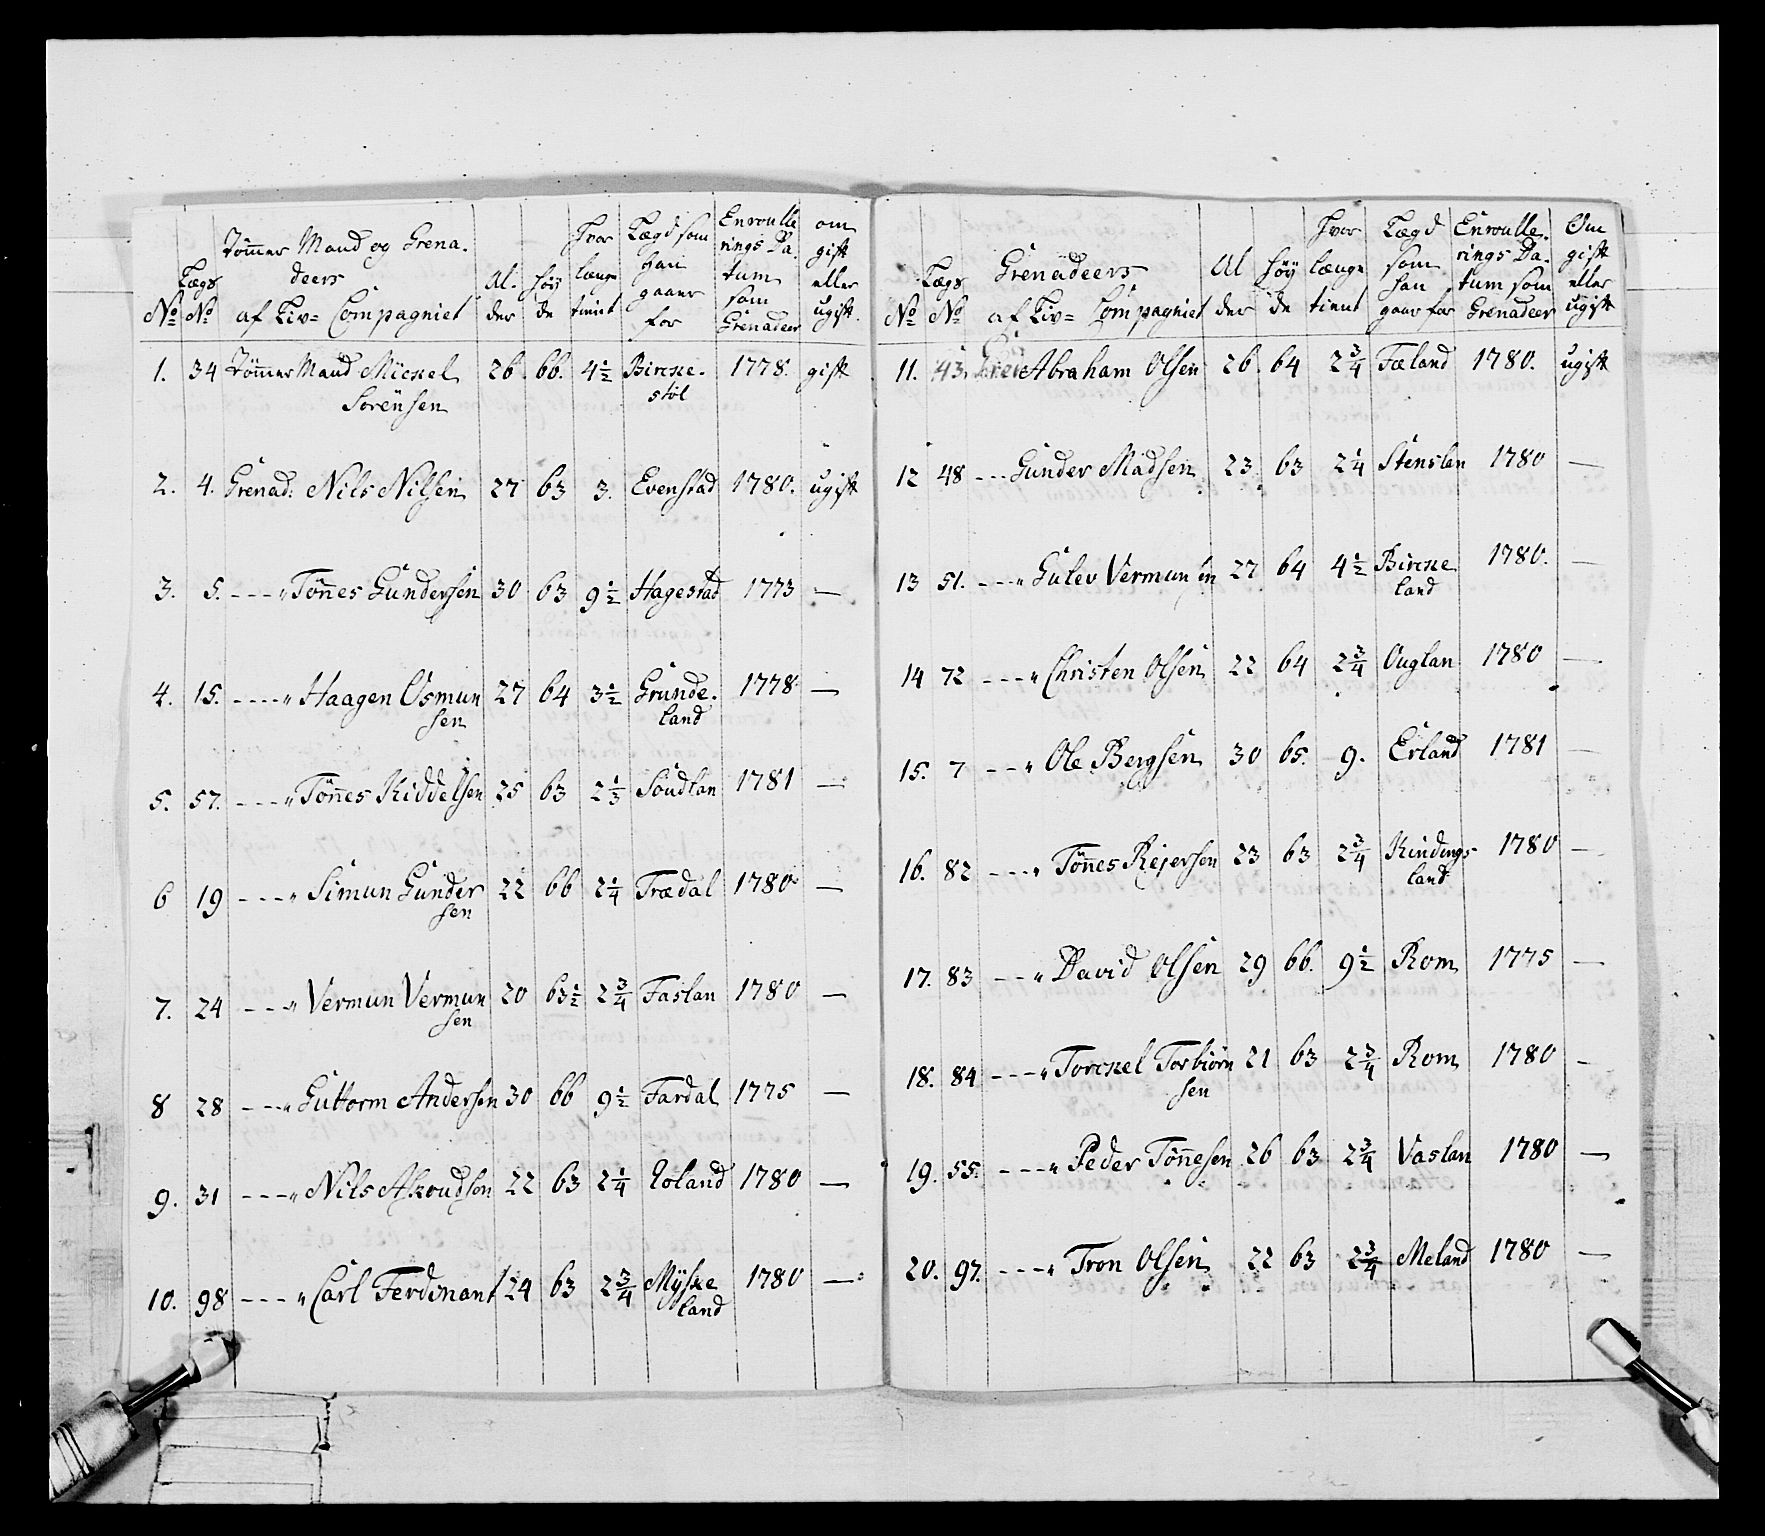 No | Lægs No | Tömmer Mand og Grenadeers af Liv= Compagniet | Alder | Höÿde | Hvor længe tient | Lægd som han gaaer for | Enroullerings Datum som Grenadeer | om gift eller ugift
1. 34 Tömmer Mand Mickel 26 66. 4½ Bircke- 1778. gift
Sörensen støl
2. 4. Grenad: Nils Nilsen 27 63 3. Evenstad 1780. ugift
3. 5. ---" Tönnes Gundersen 30 63 9½ Hagestad 1773 —
4. 15. ----" Haagen Osmun 27 64 3½ Grunde- 1778. —
sen land
5. 57. ----" Tönnes Kiddelsen 25 63 2⅓ Söudlan 1781 —
6 19 ----" Simun Gunder 22 66 2¼ Trædal 1780. —
sen
7. 24 ---" Vermun Vermun 20 63½ 2¾ Faslan 1780 —
sen
8 28 ---" Guttorm Andersen 30 66 9½ Fardal 1775 —
9. 31 ----" Nils Aßoudsøn 22 63 2¼ Roland 1780 —
10. 98 ----" Carl Ferdinant 24 63 2¾ Myske 1780 —
land
No | Lægs No | Grenadeers af Liv= Compagniet | Alder | Höÿde | Hvor længe tient | Lægd som han gaar for | Enroullerings Datum som Grenadeer | Om gift eller ugift
11. 43 Abraham Olsen 26 64 2¾ Fæland 1780. ugift
12 48 --- Gunder Madsen 23 63 2¼ Stenslan 1780 —
13 51. ---" Gulev Vermunsen 27 64 4½ Bircke 1780. —
land
14 72 ----" Christen Olsen 22 64 2¾ Ouglan 1780 —
15. 7 ---" Ole Bergsen 30 65. 9. Erland 1781 —
16. 82 ---" Tönnes Rejersen 23 63 2¾ Kindings- 1780 —
land
17. 83 ---" David Olsen 29 66. 9½ Rom 1775 —
18. 84 ----" Torckel Torbiörn 21 63 2¾ Rom 1780 —
sen
19. 55. ----" Peder Tönnesen 26 63 2¾ Vaslan 1780 —
20. 97. ----" Tron Olsen 22 63 2¾ Meland 1780 —